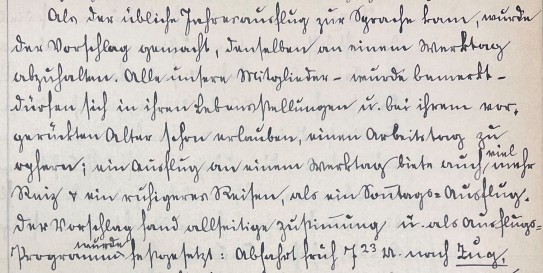 Als der übliche Jahresausflug zur Sprache kam, wurde
der Vorschlag gemacht, denselben an einem Werktag
abzuhalten. Alle unsere Mitglieder – wurde bemerkt –
dürfen sich in ihren Lebensstellungen u. bei ihrem vor-
gerückten Alter schon erlauben, einen Arbeitstag zu
opfern; ein Ausflug an einem Werktag biete auch viel mehr
Reiz & ein ruhigeres Reisen, als ein Son̄tags-Ausflug.
Der Vorschlag fand allseitige Zustim̄ung u. als Ausflugs-
Programm wurde festgesetzt: Abfahrt früh 7 23 U. nach Zug,